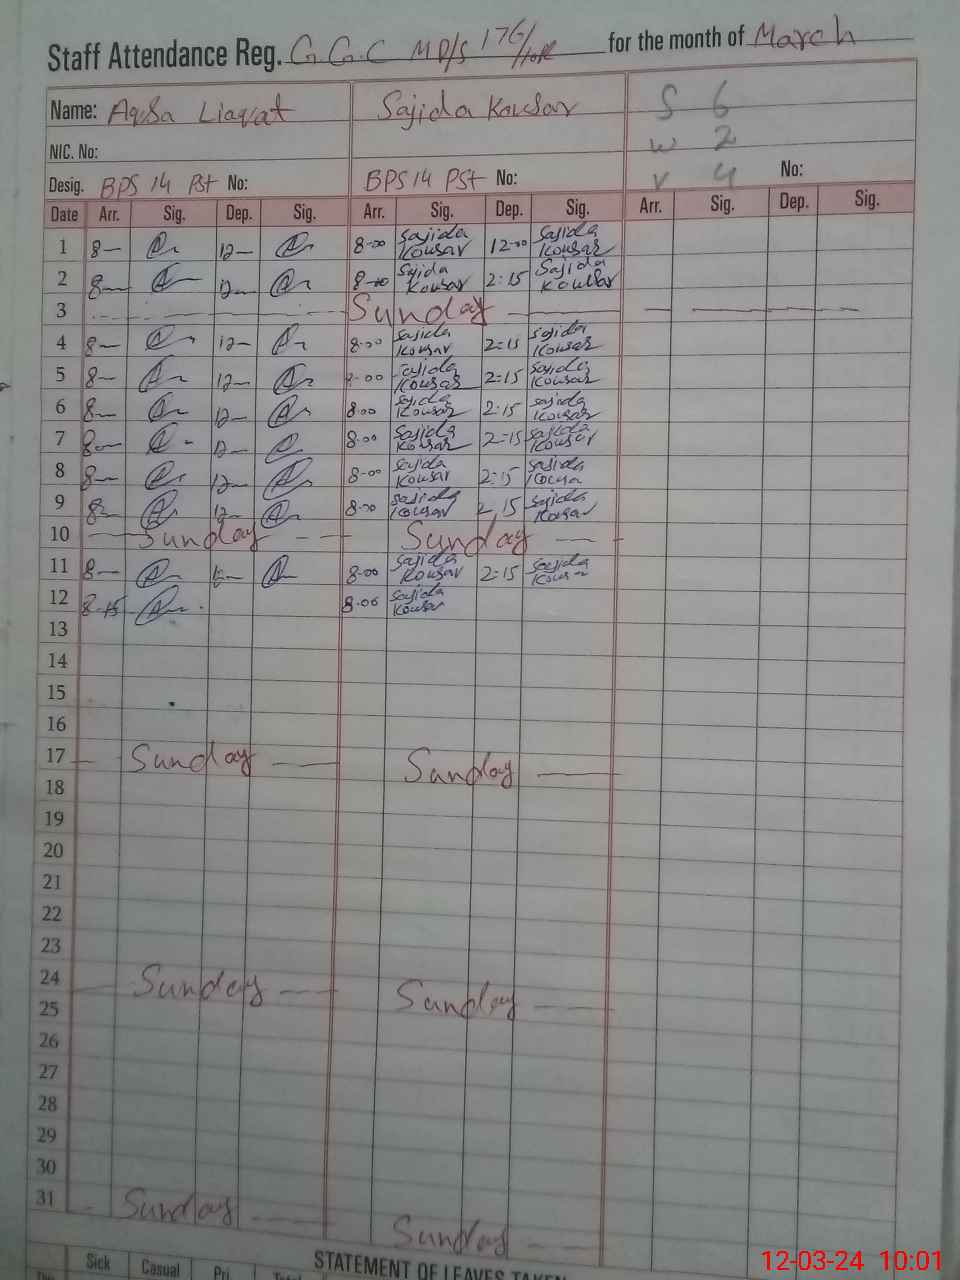 Staff Attendance Reg. G.G.C MD/S 176/10R for the month of March
Name: Aqsa Liaqat Sajida Kousar S 6
NIC. No: W 2
Desig. BPS 14 PST No: BPS 14 PST No: V 4 No:
Date Arr. Sig. Dep. Sig. Arr. Sig. Dep. Sig. Arr. Sig. Dep. Sig.
1 8— 12— 8-00 Sajida Kousar 12-00 Sajida Kousar
2 8— 12— 8-00 Sajida Kousar 2:15 Sajida Kousar
3 Sunday
4 8— 12— 8:00 Sajida Kousar 2:15 Sajida Kousar
5 8— 12— 8-00 Sajida Kousar 2:15 Sajida Kousar
6 8— 12— 8:00 Sajida Kousar 2:15 Sajida Kousar
7 8— 12— 8:00 Sajida Kousar 2:15 Sajida Kousar
8 8— 12— 8-00 Sajida Kousar 2:15 Sajida Kousa
9 8— 12— 8-00 Sajida Kousar 2,15 Sajida Kousar
10 Sunday Sunday
11 8— 8-00 Sajida Kousar 2:15 Sajida Kousar
12 8-15 8-00 Sajida Kousar
13
14
15
16
17 Sunday Sunday
18
19
20
21
22
23
24 Sunday Sunday
25
26
27
28
29
30
31 Sunday Sunday
Sick Casual Pri
STATEMENT OF LEAVES TAKEN
12-03-24 10:01